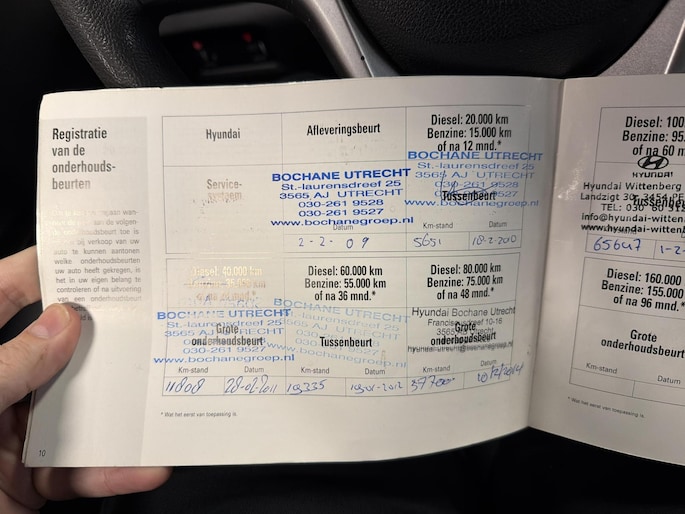 Registratie
van de
onderhouds-
beurten
welke onderhoudsbeurten
uw auto heeft gekregen, is
het in uw eigen belang te
controleren of na uitvoering
van een onderhoudsbeurt
Hyundai
Service-
systeem
Afleveringsbeurt
BOCHANE UTRECHT
St.-laurensdreef 25
3565 AJ UTRECHT
030-261 9528
030-261 9527
www.bochanegroep.nl
Datum
2-2-09
Diesel: 20.000 km
Benzine: 15.000 km
of na 12 mnd.*
BOCHANE UTRECHT
St.-laurensdreef 25
3565 AJ UTRECHT
030-261 9528
030-261 9527
www.bochanegroep.nl
Tussenbeurt
Km-stand
Datum
5651
Diesel: 40.000 km
BOCHANE UTRECHT
St.-laurensdreef 25
3565 AJ UTRECHT
030-261 9527
www.bochanegroep.nl
Grote
onderhoudsbeurt
Km-stand
Datum
11808
28-02-2011
Diesel: 60.000 km
Benzine: 55.000 km
of na 36 mnd.*
BOCHANE UTRECHT
St.-laurensdreef 25
3565 AJ UTRECHT
www.bochanegroep.nl
Tussenbeurt
Km-stand
Datum
19335
Diesel: 80.000 km
Benzine: 75.000 km
of na 48 mnd.*
Hyundai Bochane Utrecht
Grote
onderhoudsbeurt
Km-stand
Datum
37700
* Wat het eerst van toepassing is.
10
Diesel: 100
Benzine: 95.
of na 60 m
HYUNDAI
Hyundai Wittenberg
TEL: 030
info@hyundai-wittenb
www.hyundai-wittenb
Km-stand
65647
1-2-
Diesel: 160.000
Benzine: 155.000
of na 96 mnd.*
Grote
onderhoudsbeurt
Km-stand
Datum
* Wat het eerst van toepassing is.